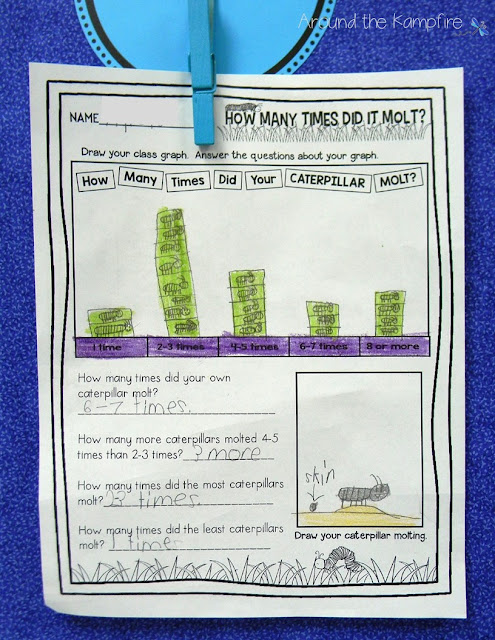 Around the Kampfire
NAME
HOW MANY TIMES DID IT MOLT?
Draw your class graph. Answer the questions about your graph.
How Many Times Did Your CATERPILLAR MOLT?
1 time 2-3 times 4-5 times 6-7 times 8 or more
How many times did your own
caterpillar molt?
6-7 times.
How many more caterpillars molted 4-5
times than 2-3 times? more
How many times did the most caterpillars
molt? 23 times.
How many times did the least caterpillars
molt? 1 times
skin
Draw your caterpillar molting.